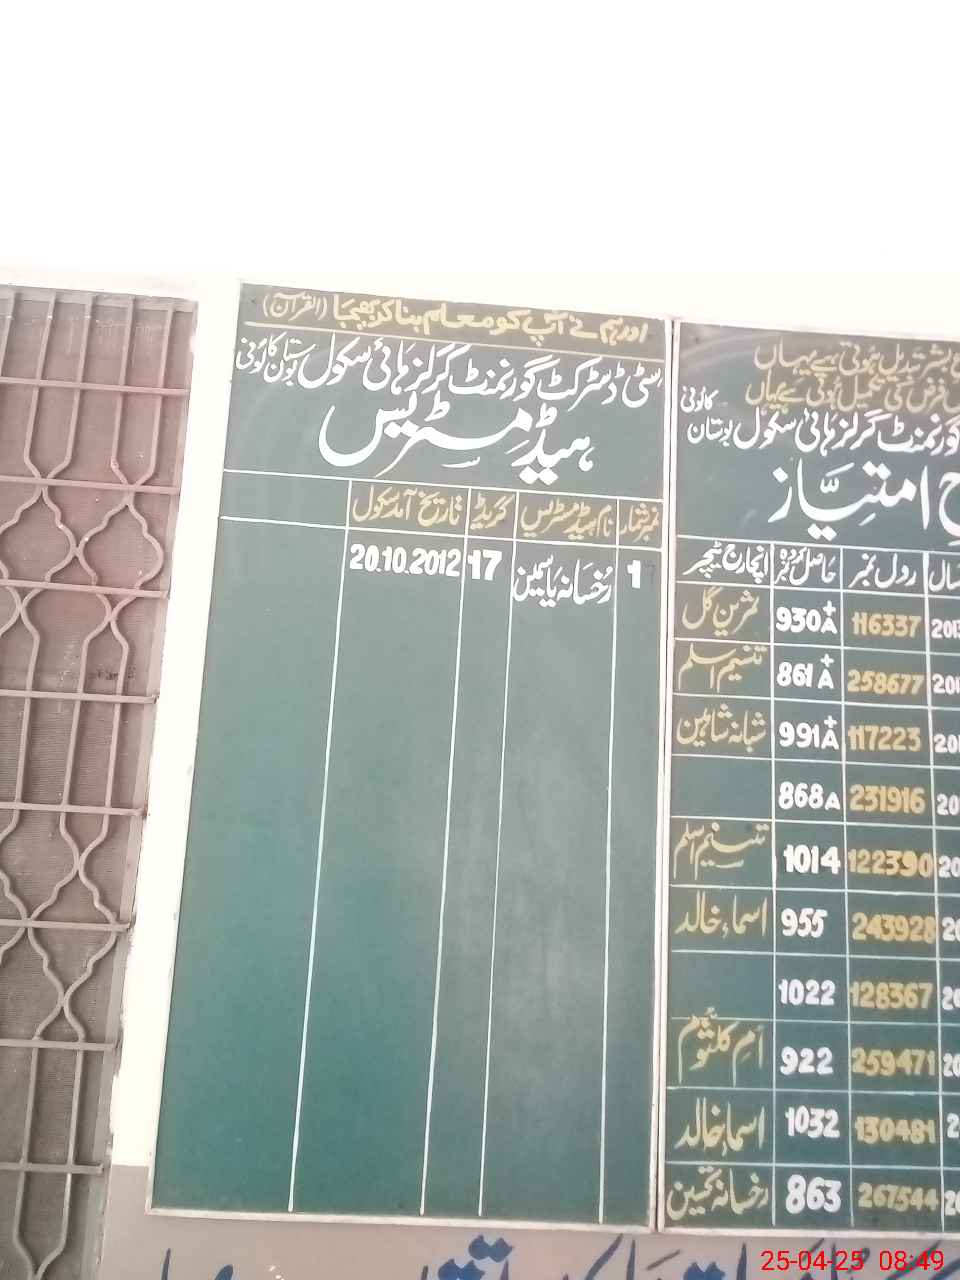 اور ہم نے آپ کو معلم بنا کر بھیجا (القرآن)
سٹی ڈسٹرکٹ گورنمنٹ گرلز ہائی سکول بوستان کالونی
ہیڈ مسٹریس
نمبر شمار نام ہیڈ مسٹریس گریڈ تاریخ آمد سکول
1 رخسانہ یاسمین 17 20.10.2012
بشر تبدیل ہوتی ہے یہاں
فرض کی تکمیل ہوتی ہے جہاں
گورنمنٹ گرلز ہائی سکول بوستان کالونی
امتیاز
سال رول نمبر حاصل کردہ نمبر انچارج ٹیچر
116337 930 A+ ثمرین گل
258677 861 A+ تنسیم اسلم
117223 991 A+ شبانہ شاہین
231916 868 A
122390 1014 تنسیم اسلم
243928 955 اسماء خالد
128367 1022
259471 922 ام کلثوم
130481 1032 اسماء خالد
267544 863 رخسانہ تحسین
25-04-25 08:49